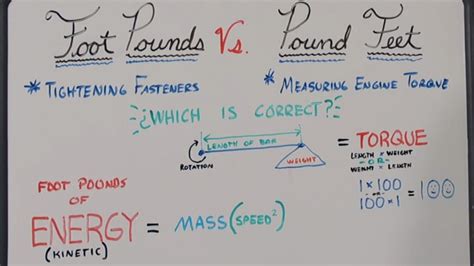 Foot Pounds Vs. Pound Feet
* TIGHTENING FASTENERS
* MEASURING ENGINE TORQUE
¿WHICH IS CORRECT?
LENGTH OF BAR
ROTATION
WEIGHT
= TORQUE
LENGTH × WEIGHT
- OR -
WEIGHT × LENGTH
1 × 100
- OR -
100 × 1
= 100
FOOT POUNDS
OF
ENERGY = MASS(SPEED²)
(KINETIC)